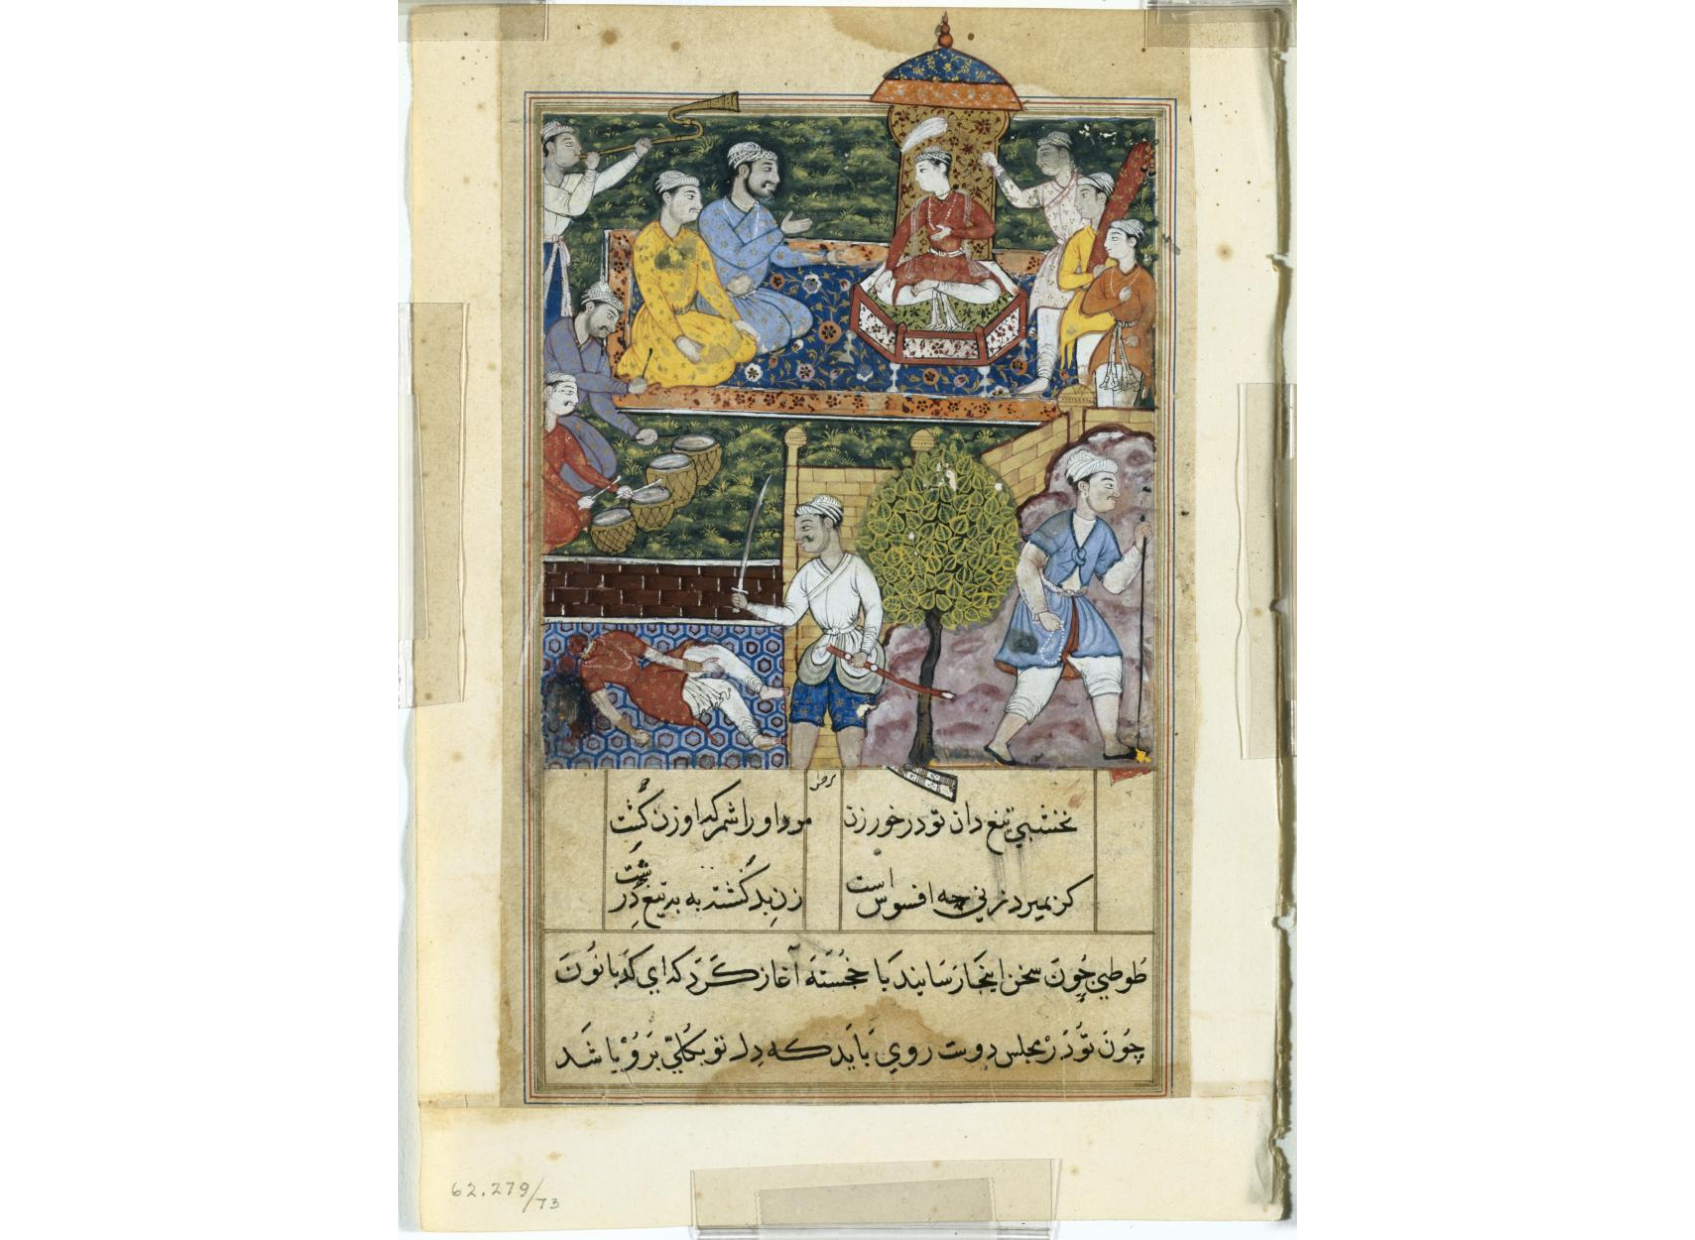 نخشبی تیغ دان تو در خور زن
مرد او را شمر که او زن کشت
کر بمیرد زنی چه افسوس است
زن بد کشته به بد تیغ درشت
طوطی چون سخن اینجا رسانید با خجسته آغاز کرد که ای کدبانو
چون تو در مجلس دوست روی باید که دل تو بکلی برو باشد
62.279/73